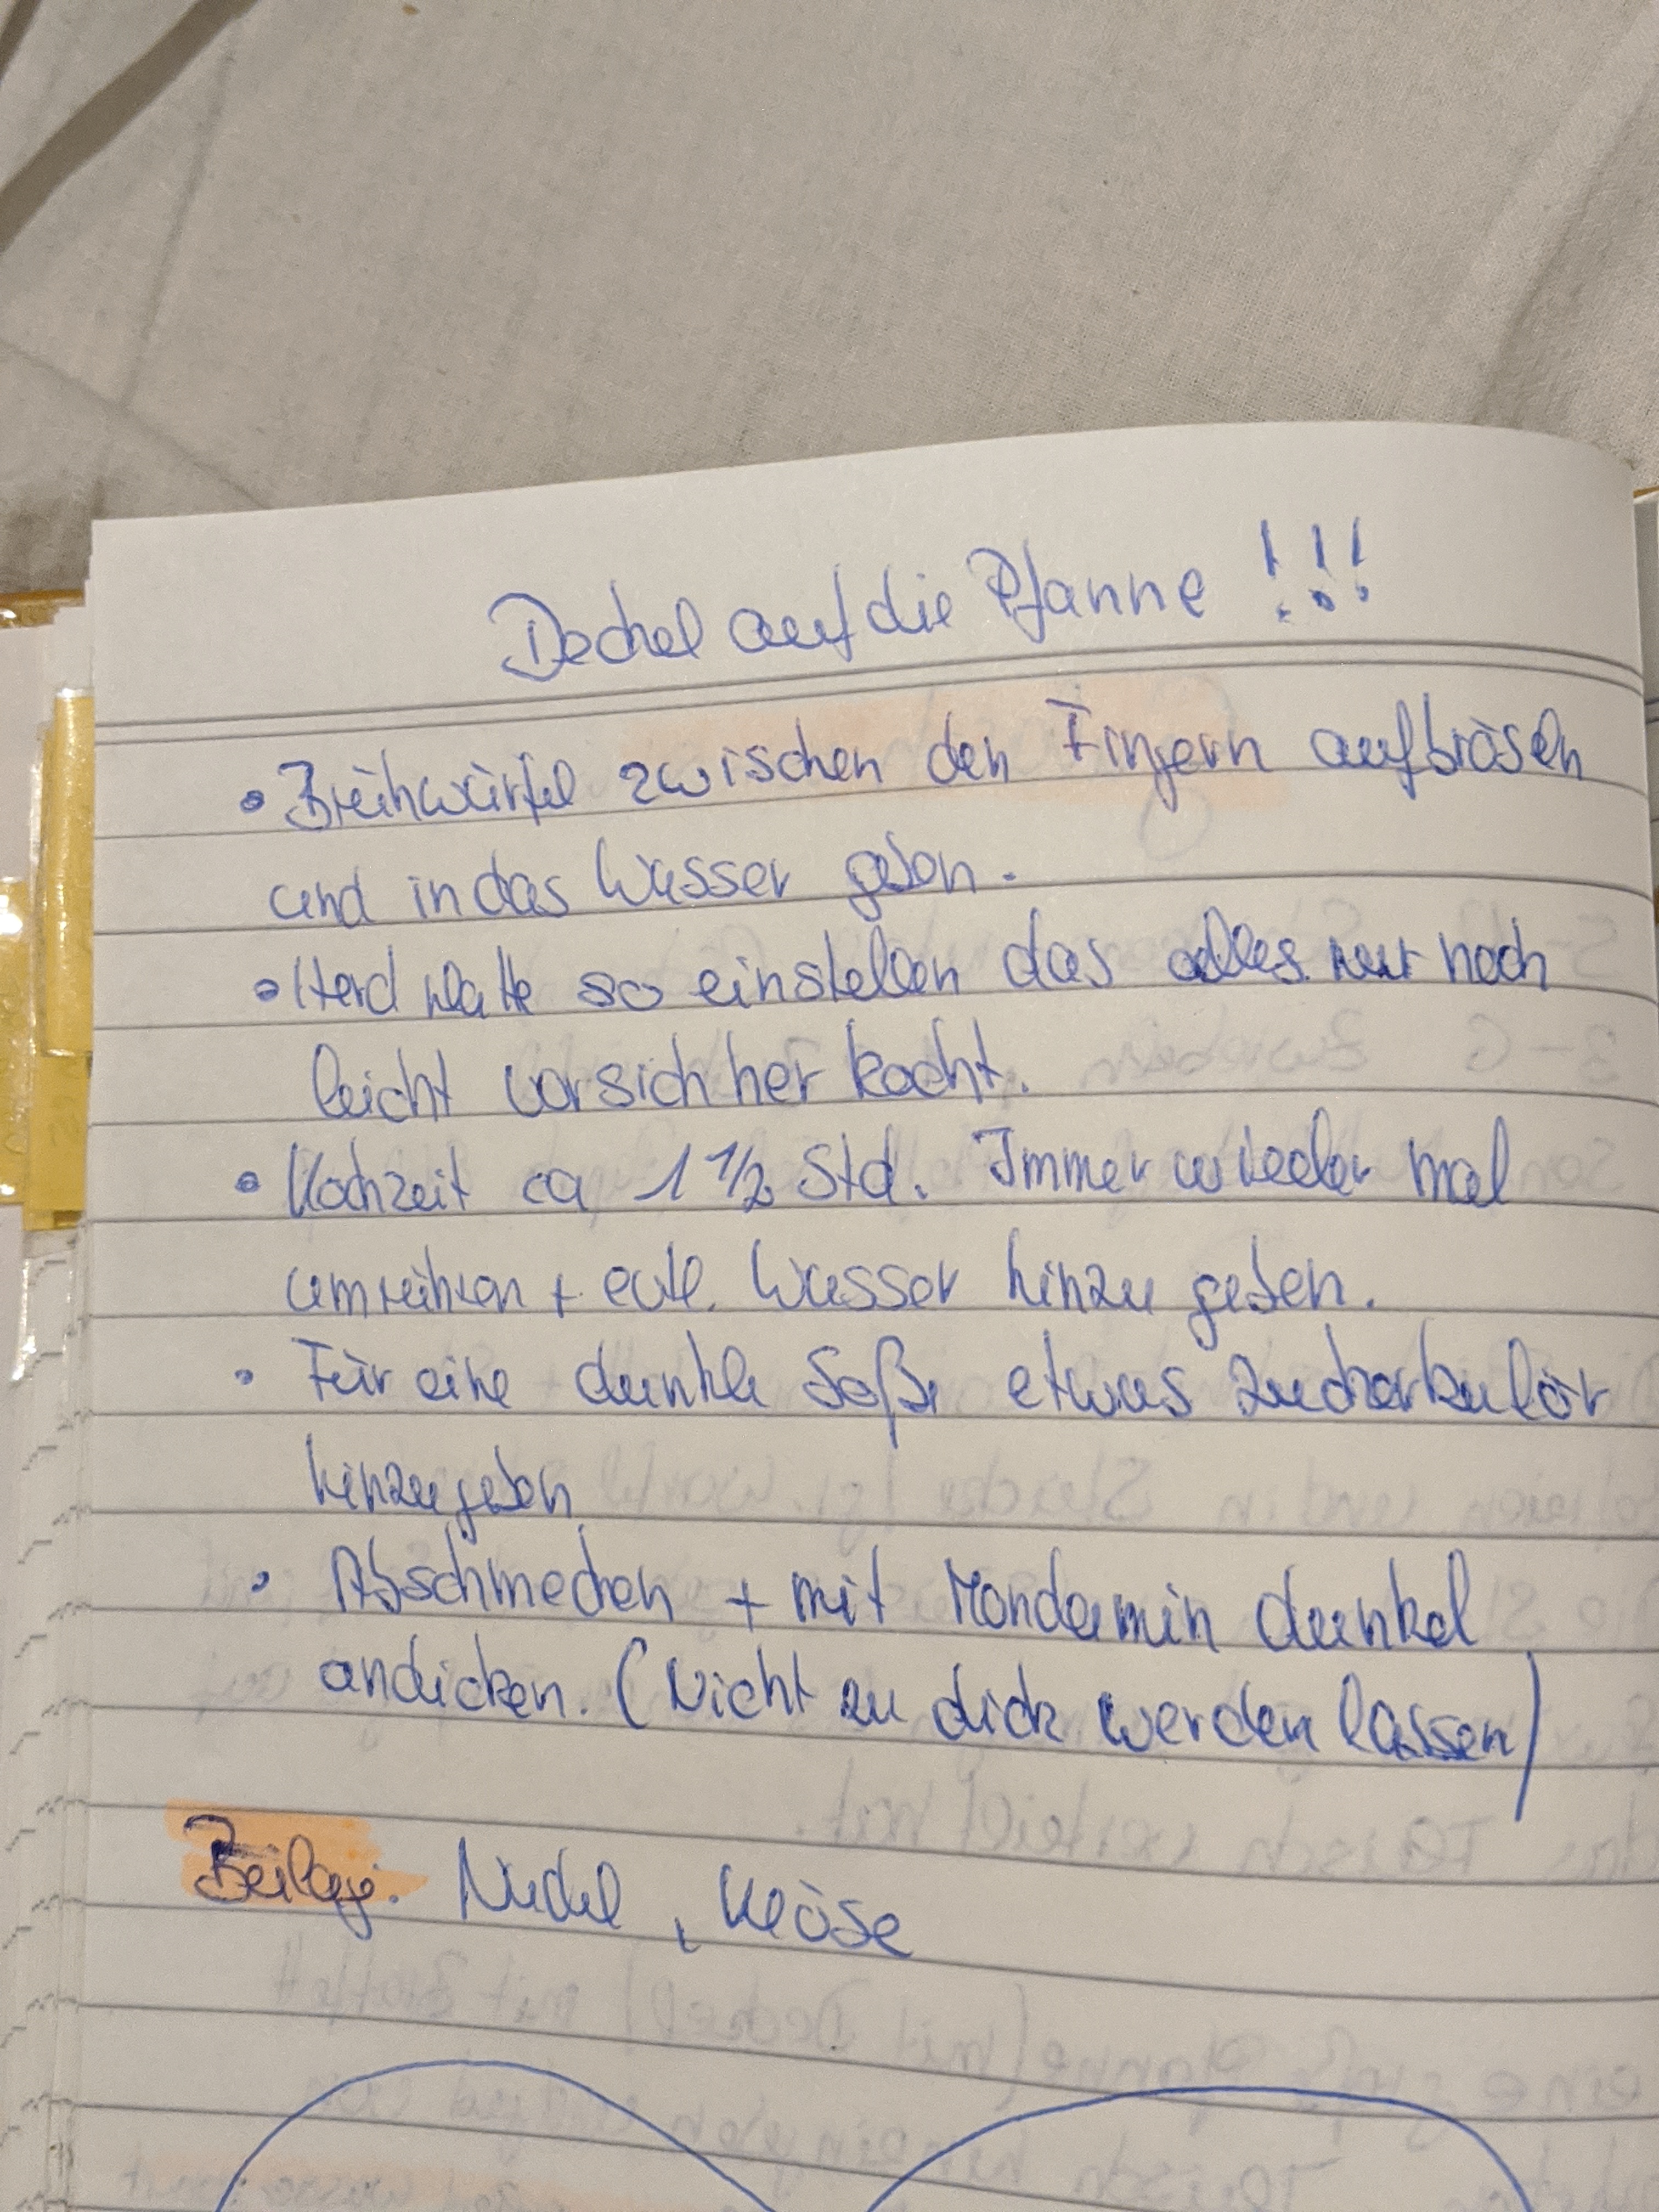 Deckel auf die Pfanne !!!
• Brühwürfel zwischen den Fingern aufbrösen
und in das Wasser geben.
• Herdplatte so einstellen das alles nur noch
leicht vor sich her kocht.
• Kochzeit ca 1 1/2 Std. Immer wieder mal
umrühren + evtl. Wasser hinzu geben.
• Für eine dunkle Soße etwas Zuckerkulör
hinzugeben
• Abschmecken + mit Mondamin dunkel
andicken. (Nicht zu dick werden lassen)
Beilage: Nudel, Klöse